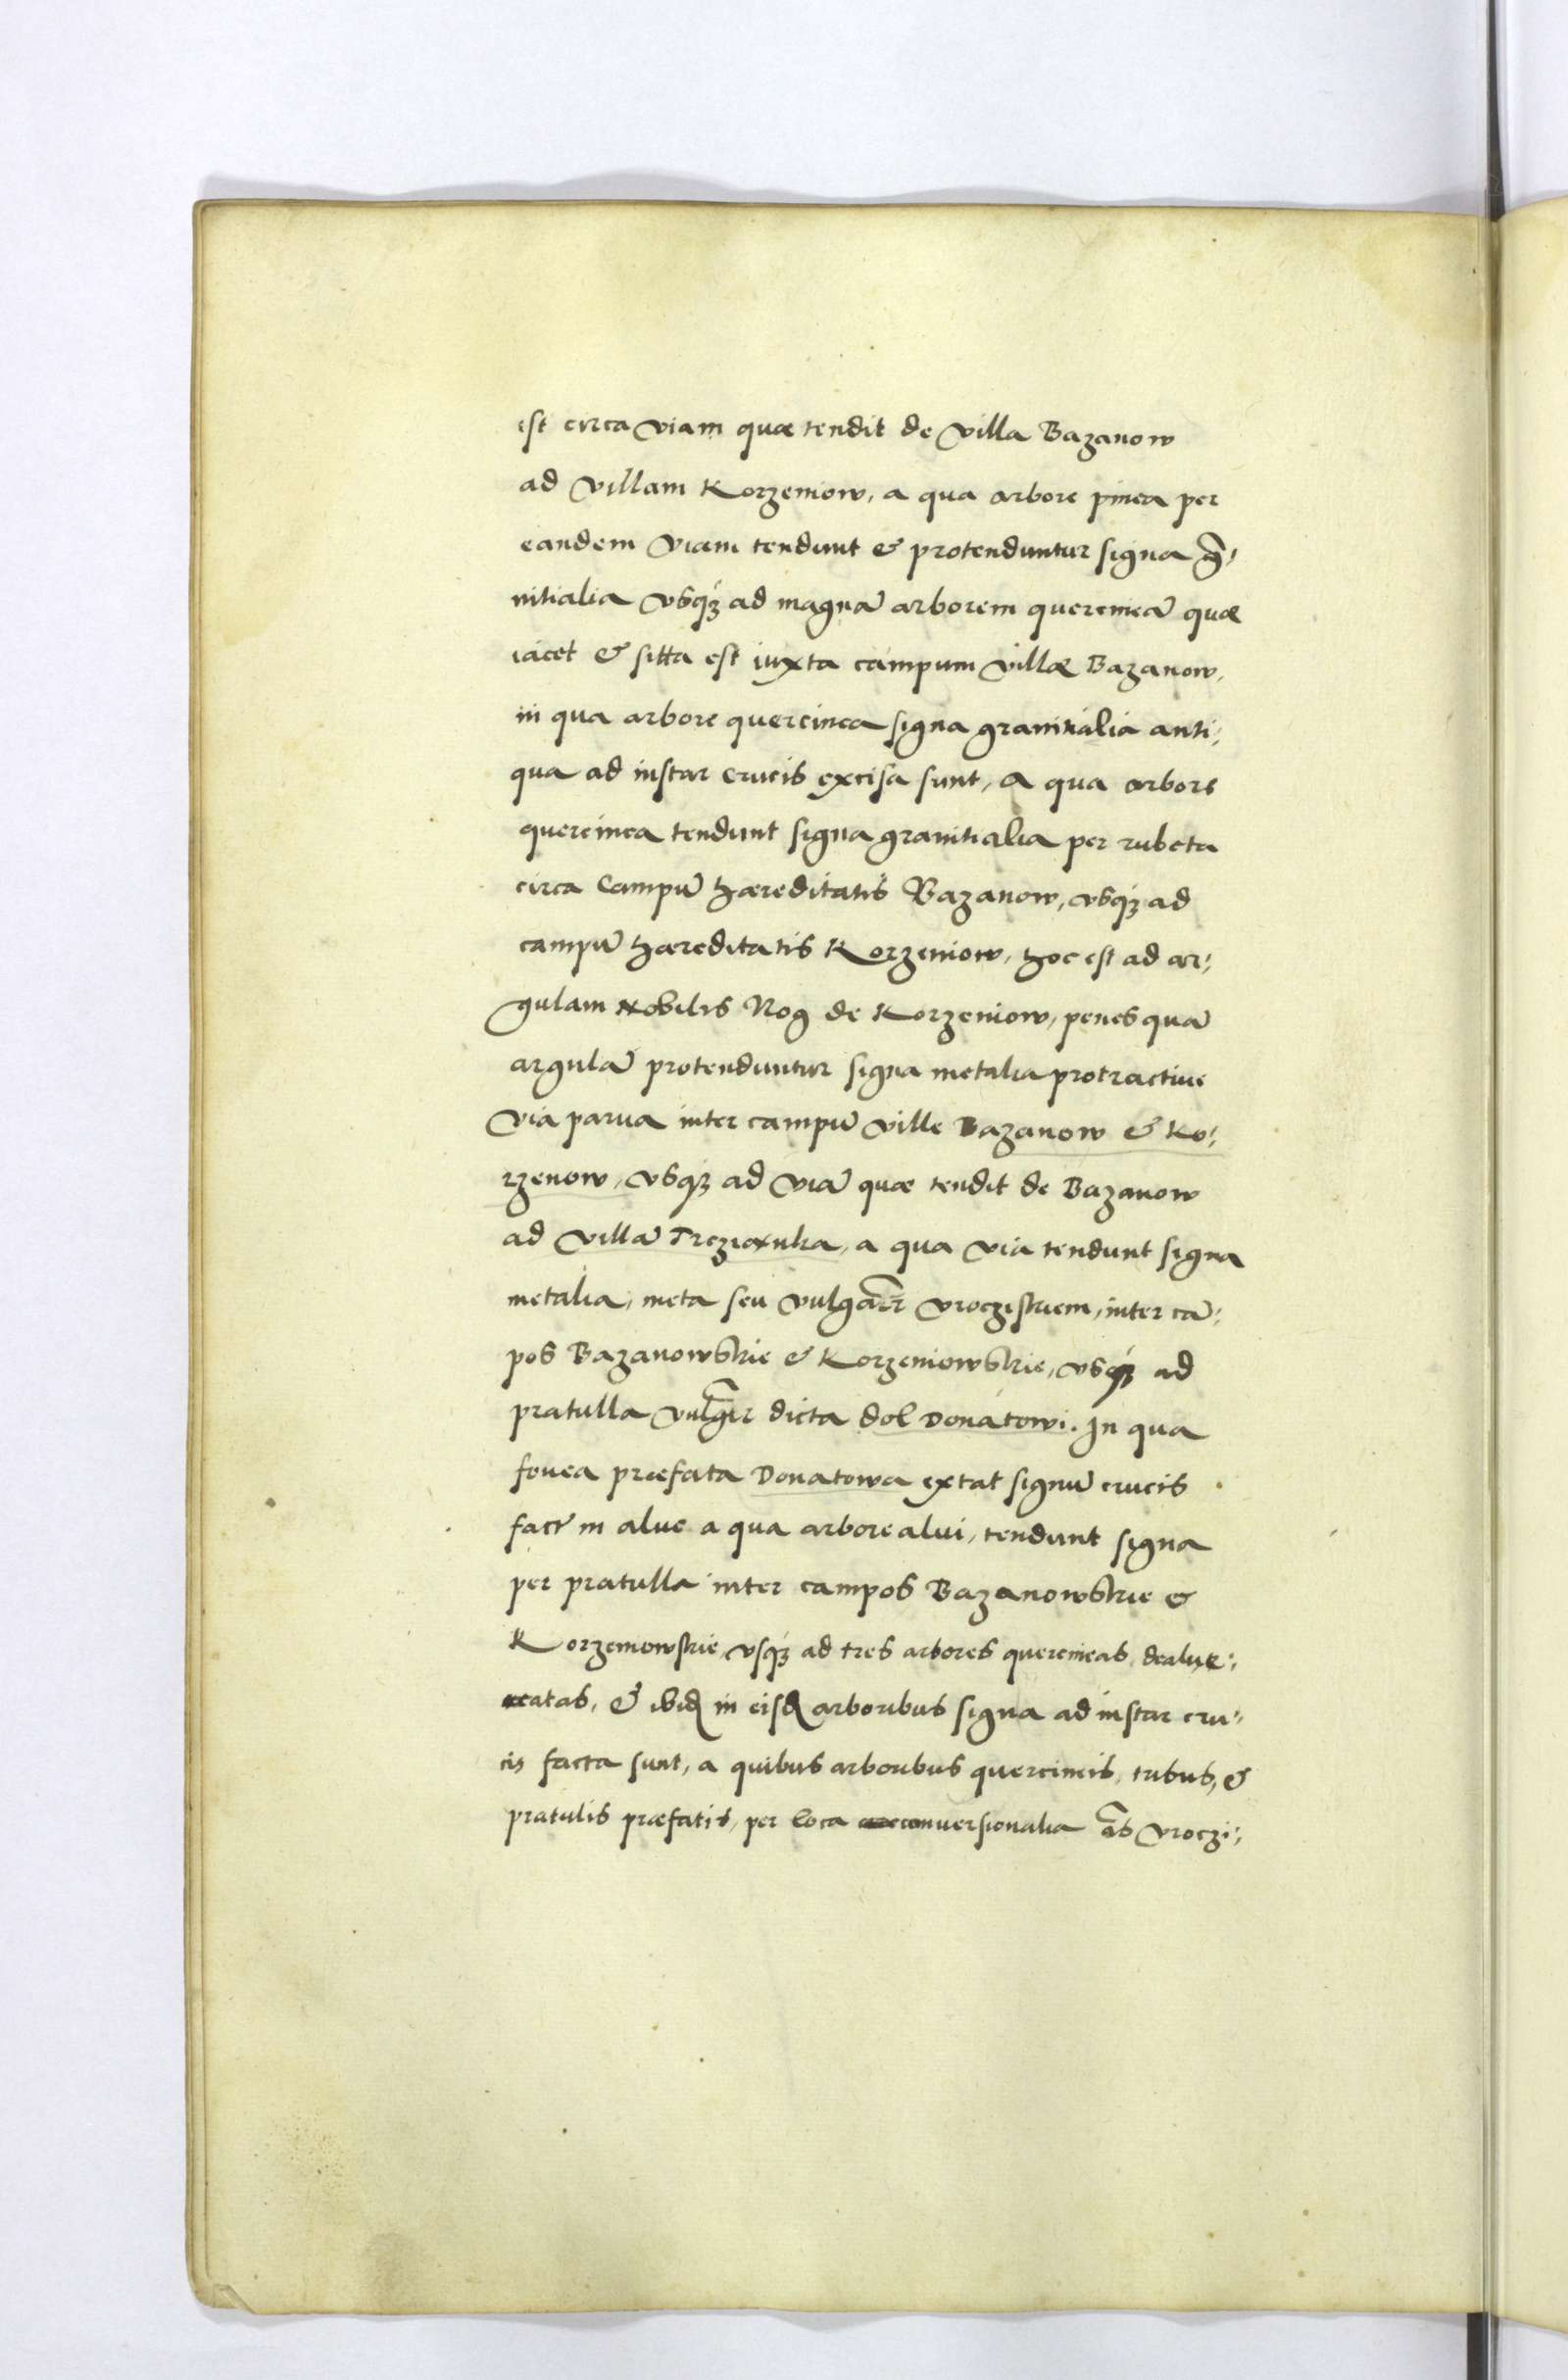 est circa viam quæ tendit de Villa Bazanow
ad Villam Korzeniow, a qua arbore pinea per
eandem Viam tendunt & protenduntur signa grã:
nitialia vsqꝫ ad magnã arborem quercineã quæ
iacet & sitta est iuxta campum Villæ Bazanow,
in qua arbore quercinea signa granitialia anti:
qua ad instar Crucis excisa sunt, a qua arbore
quercinea tendunt signa granitialia per rubeta
circa Campũ hæreditatis Bazanow, vsqꝫ ad
campũ hæreditatis Korzeniow, hoc est ad ar:
gulam Nobilis Nog de Korzeniow, penes quã
argulã protenduntur signa metalia protractiue
Via parua inter campũ Ville Bazanow & Ko:
rzenow, vsqꝫ ad viã quæ tendit de Bazanow
ad Villã, a qua via tendunt signa
metalia, meta seu vulgarr̃ vroczistiem, inter cã:
pos Bazanowskie & Korzeniowskie, vsqꝫ ad
pratulla vulgr̃ dicta dol Donatowi. In qua
fouea præfata Donatowa extat signũ crucis
factr̃ in alue a qua arbore alui, tendunt signa
per pratulla inter campos Bazanowskie &
Korzeniowskie, vsqꝫ ad tres arbores quercineas dealue:
atas, & ibid in eisd arboribus signa ad instar cru:
cis facta sunt, a quibus arboribus quercineis, tribus, &
pratulis præfatis, per loca conuersionalia ãs vroczi: